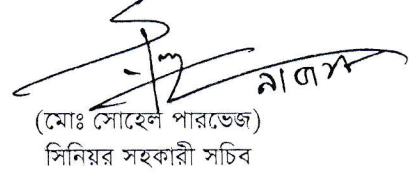 (মোঃ সোহেল পারভেজ)
সিনিয়র সহকারী সচিব